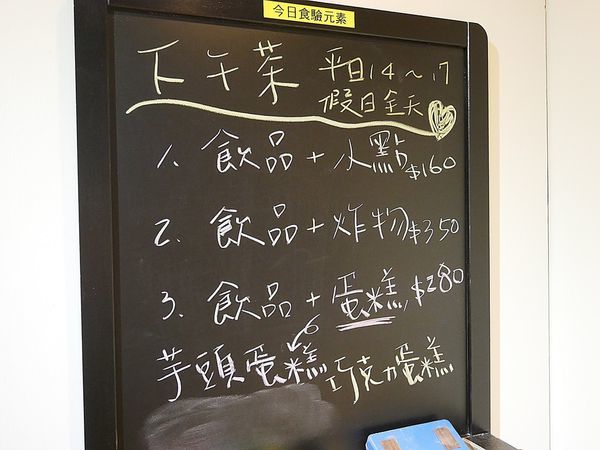 今日食驗元素
下午茶 平日14~17
假日全天
1. 飲品+小點$160
2. 飲品+炸物$350
3. 飲品+蛋糕$280
芋頭蛋糕 巧克力蛋糕